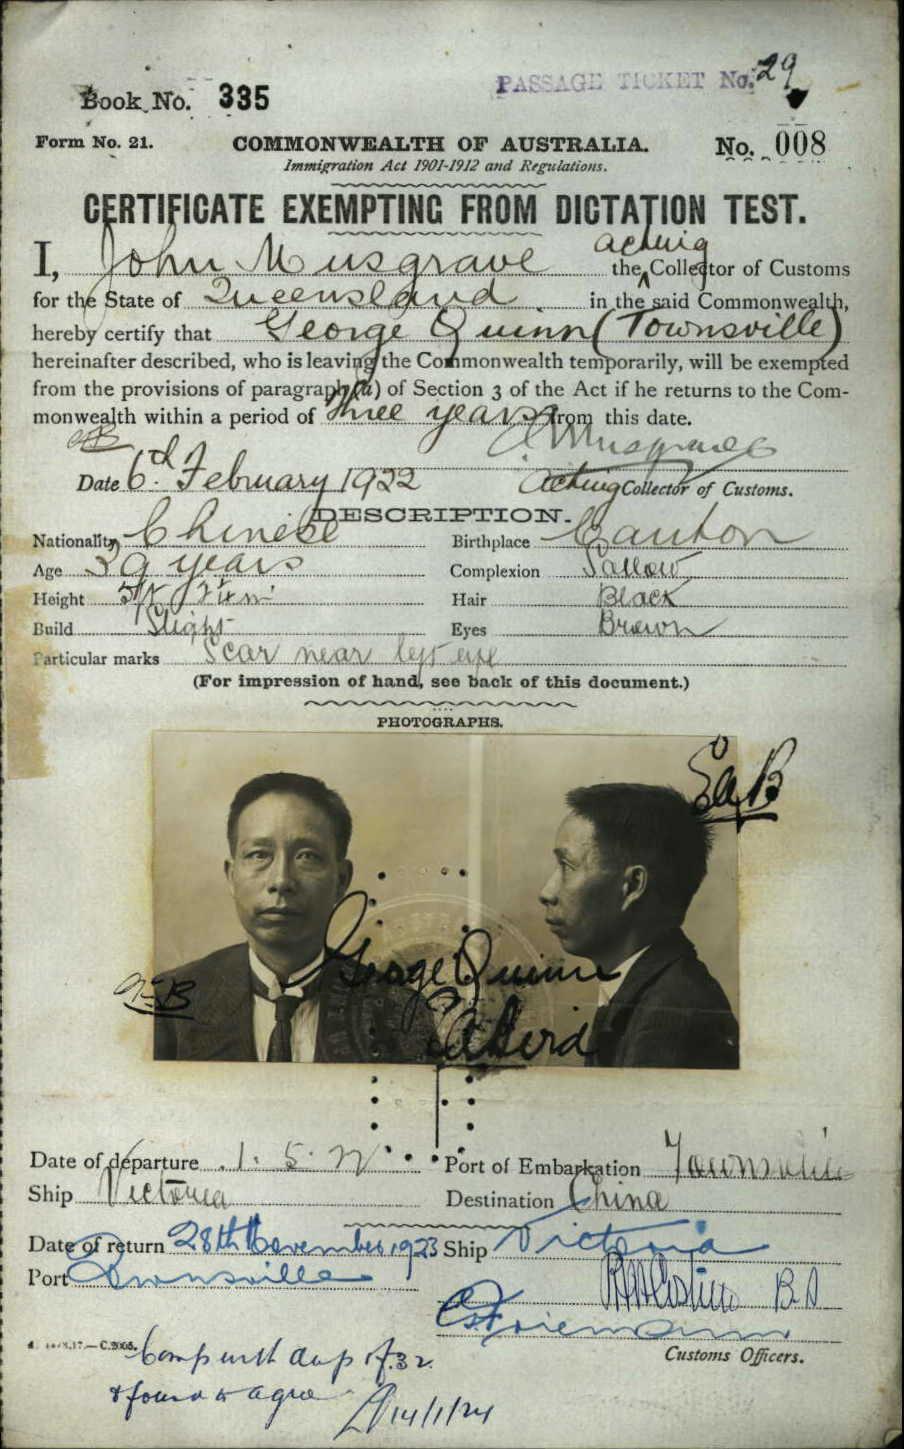 PASSAGE TICKET No. 29
Book No. 335
Form No. 21.
COMMONWEALTH OF AUSTRALIA.
No. 008
Immigration Act 1901-1912 and Regulations.
CERTIFICATE EXEMPTING FROM DICTATION TEST.
acting
I, John Musgrave the Collector of Customs
for the State of Queensland in the said Commonwealth,
hereby certify that George Quinn (Townsville)
hereinafter described, who is leaving the Commonwealth temporarily, will be exempted
from the provisions of paragraph (a) of Section 3 of the Act if he returns to the Com-
monwealth within a period of three years from this date.
J. Musgrave
Date 6th February 1922
Acting Collector of Customs.
DESCRIPTION.
Nationality Chinese Birthplace Canton
Age 39 years Complexion Sallow
Height 5ft Hair Black
Build Slight Eyes Brown
Particular marks Scar near left eye
(For impression of hand, see back of this document.)
PHOTOGRAPHS.
George Quinn
Date of departure 1. 5. 22 Port of Embarkation Townsville
Ship Victoria Destination China
Date of return 28th November 1923 Ship Victoria
Port Townsville
Customs Officers.
Comp with dup of 32
& found to agree
14/1/24